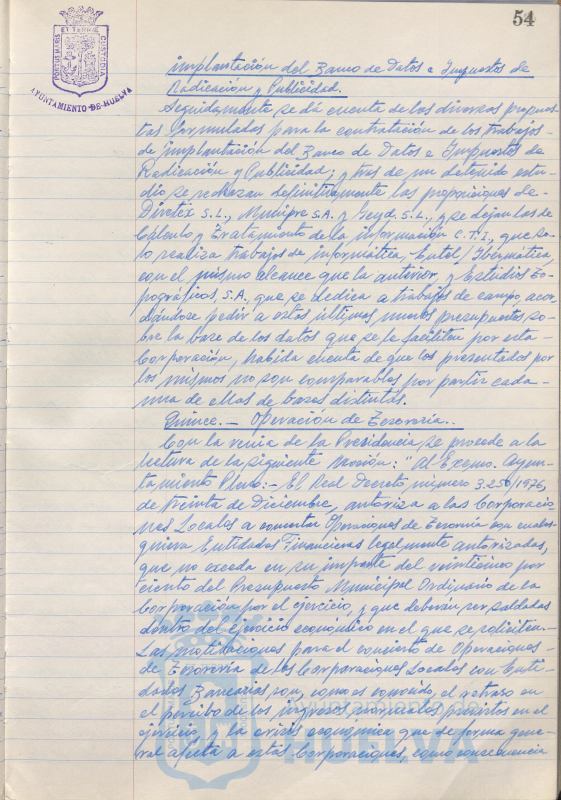 54
PORTUS MARIS ET TERRAE CUSTODIA
AYUNTAMIENTO DE HUELVA
implantación del Banco de Datos e Impuestos de
Radicación y Publicidad.
Seguidamente se dá cuenta de las diversas propues-
tas formuladas para la contratación de los trabajos-
de implantación del Banco de Datos e Impuestos de
Radicación y Publicidad; y tras de un detenido estu-
dio se rechazan definitivamente las proposiciones de-
Diretex S.L., Munipre S.A. y Geyd, S.L., y se dejan las de
Cálculo y Tratamiento de la información C.T.I., que so-
lo realiza trabajos de informática, Eutol/Ibermática,
con el mismo alcance que la anterior, y Estudios To-
pográficos, S.A., que se dedica a trabajos de campo, acor-
dándose pedir a estos últimos nuevos presupuestos so-
bre la base de los datos que se le faciliten por esta-
Corporación, habida cuenta de que los presentados por
los mismos no son comparables por partir cada-
una de ellas de bases distintas.
Quince.- Operación de Tesorería.-
Con la venia de la Presidencia se procede a la
lectura de la siguiente Moción: "Al Excmo. Ayun-
tamiento Pleno:- El Real Decreto número 3.250/1976,
de treinta de Diciembre, autoriza a las Corporacio-
nes Locales a concertar Operaciones de Tesorería con cuales-
quiera Entidades Financieras legalmente autorizadas,
que no exceda en su importe del veinticinco por
ciento del Presupuesto Municipal Ordinario de la
Corporación por el ejercicio, y que deberán ser saldadas
dentro del ejercicio económico en el que se soliciten.-
Las motivaciones para el concierto de Operaciones-
de Tesorería de las Corporaciones Locales con Enti-
dades Bancarias son, como es conocido, el retraso en
el percibo de los ingresos normales previstos en el
ejercicio y la crisis económica que de forma gene-
ral afecta a estas Corporaciones, como consecuencia